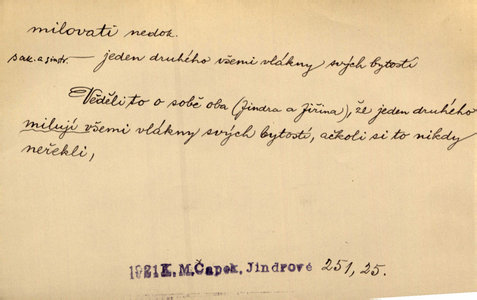 milovati nedok.
— jeden druhého všemi vlákny svých bytostí
Věděli to o sobě oba (Jindra a Jiřina), že jeden druhého
milují všemi vlákny svých bytostí, ačkoli si to nikdy
neřekli,
1921 K. M. Čapek, Jindrové 251, 25.